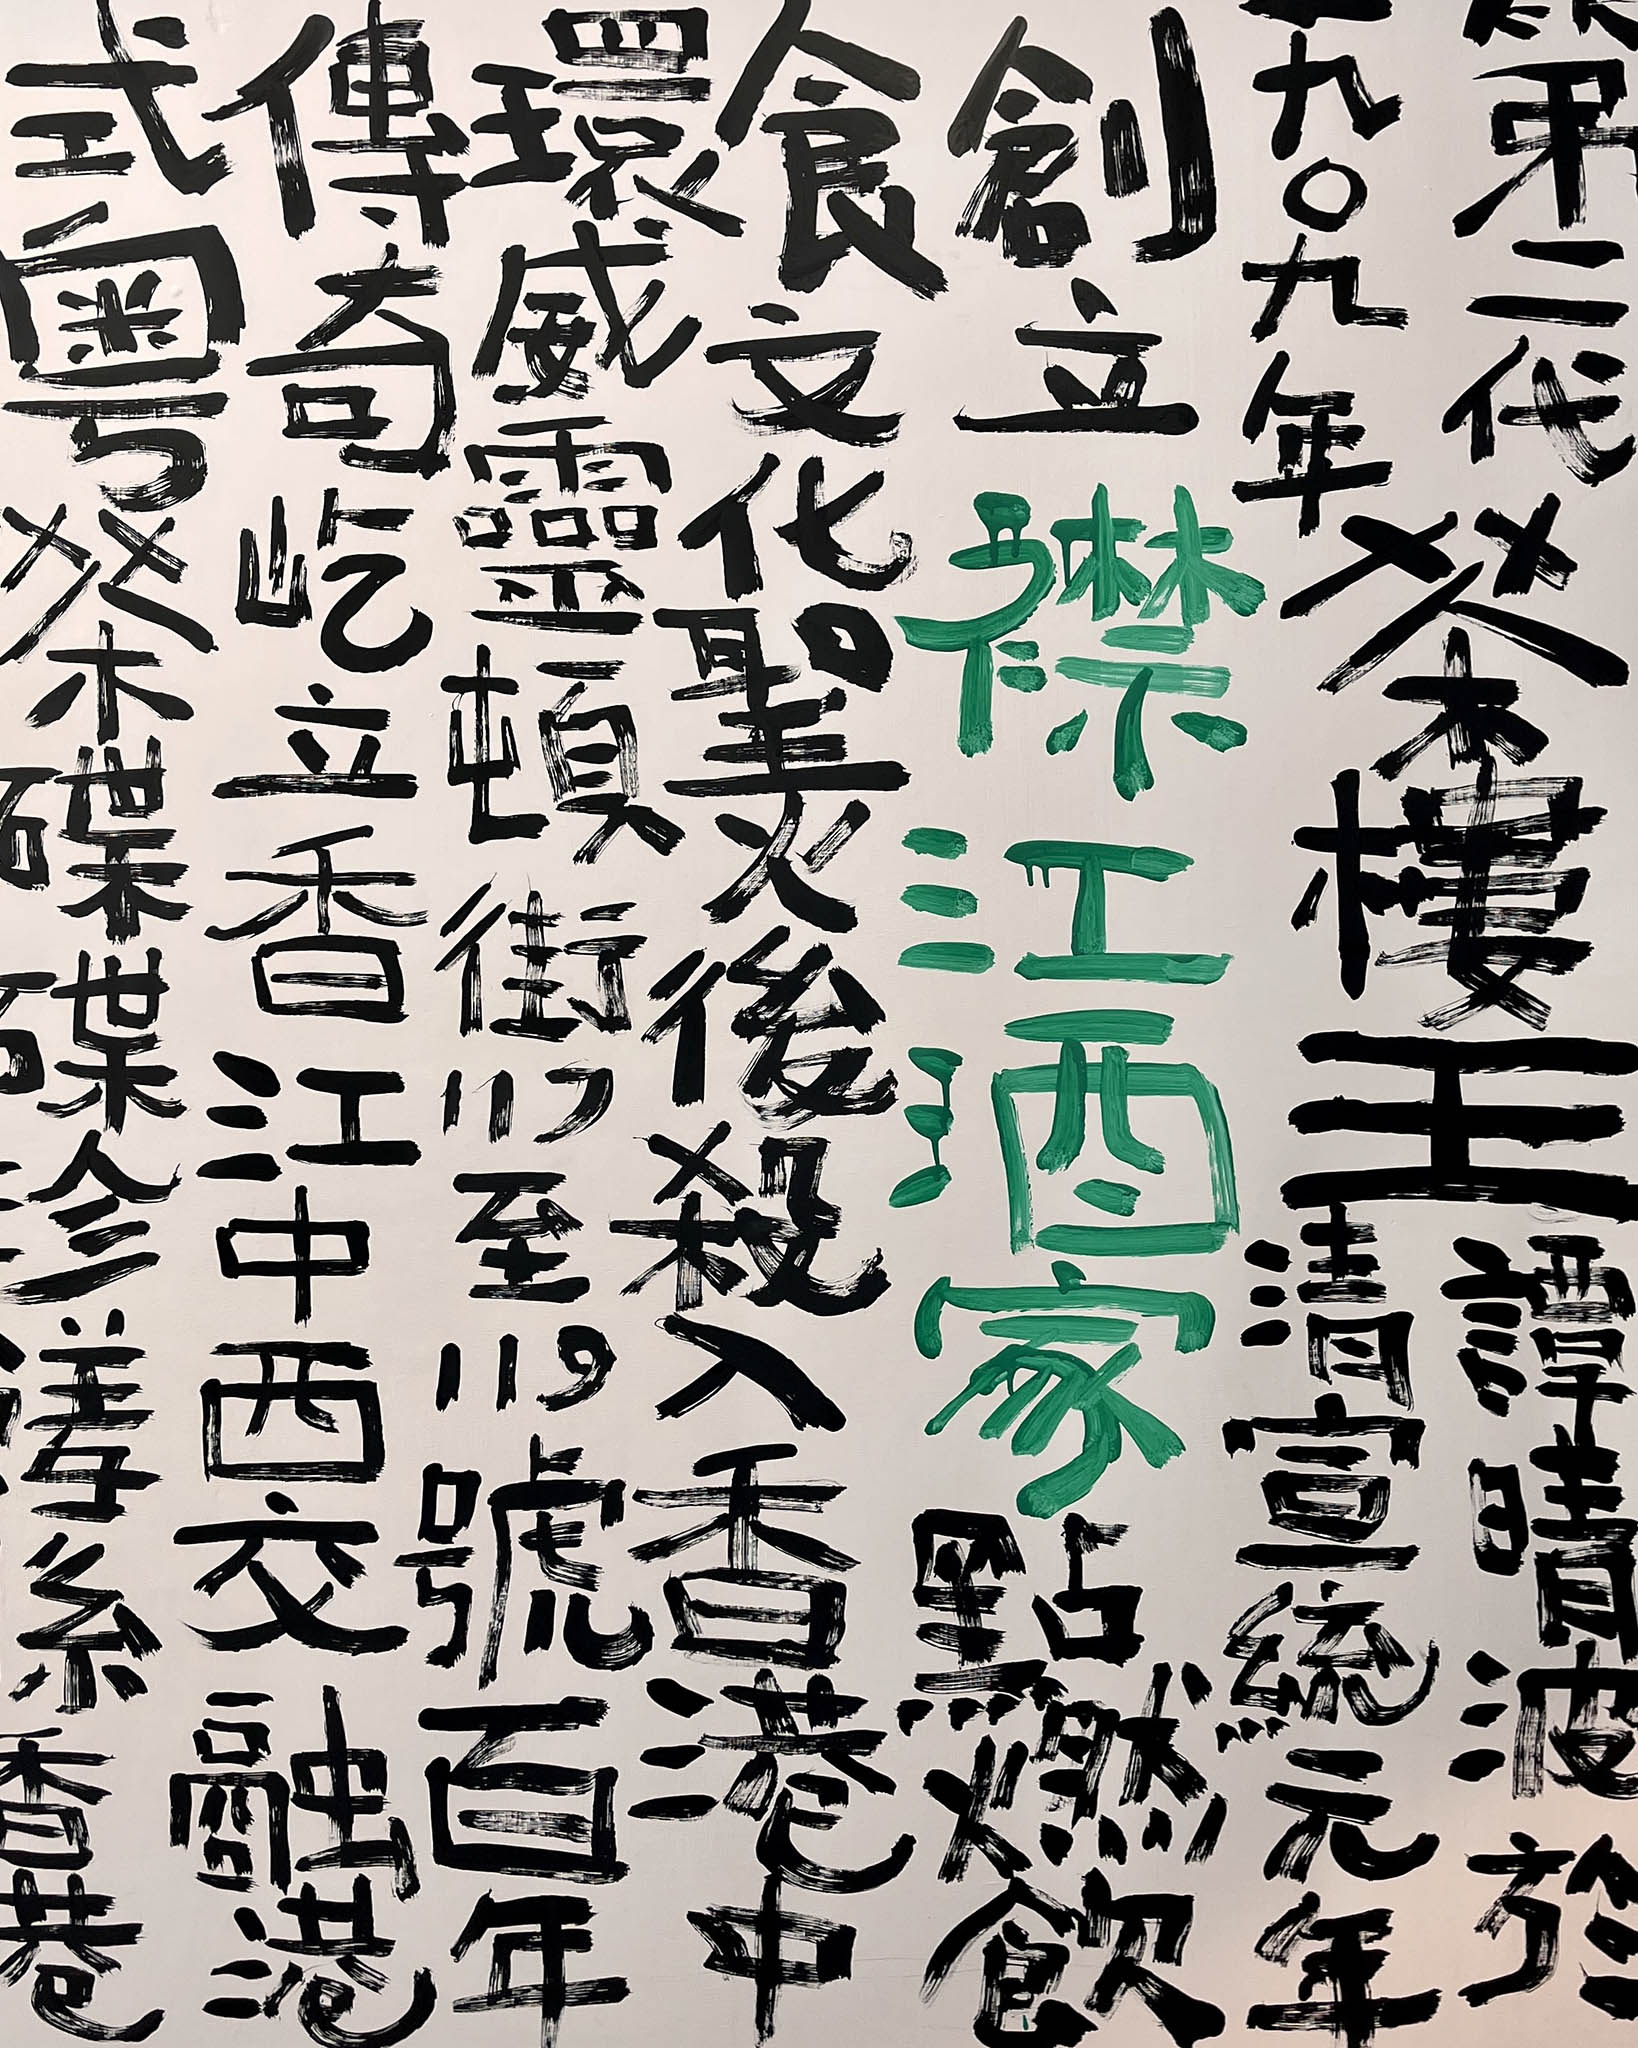 第二代茶樓王譚晴波於
一九〇九年清宣統元年
創立襟江酒家點燃飲
食文化聖火後殺入香港中
環威靈頓街117至119號百年
傳奇屹立香江中西交融港
式粵茶碟碟珍饈係香港